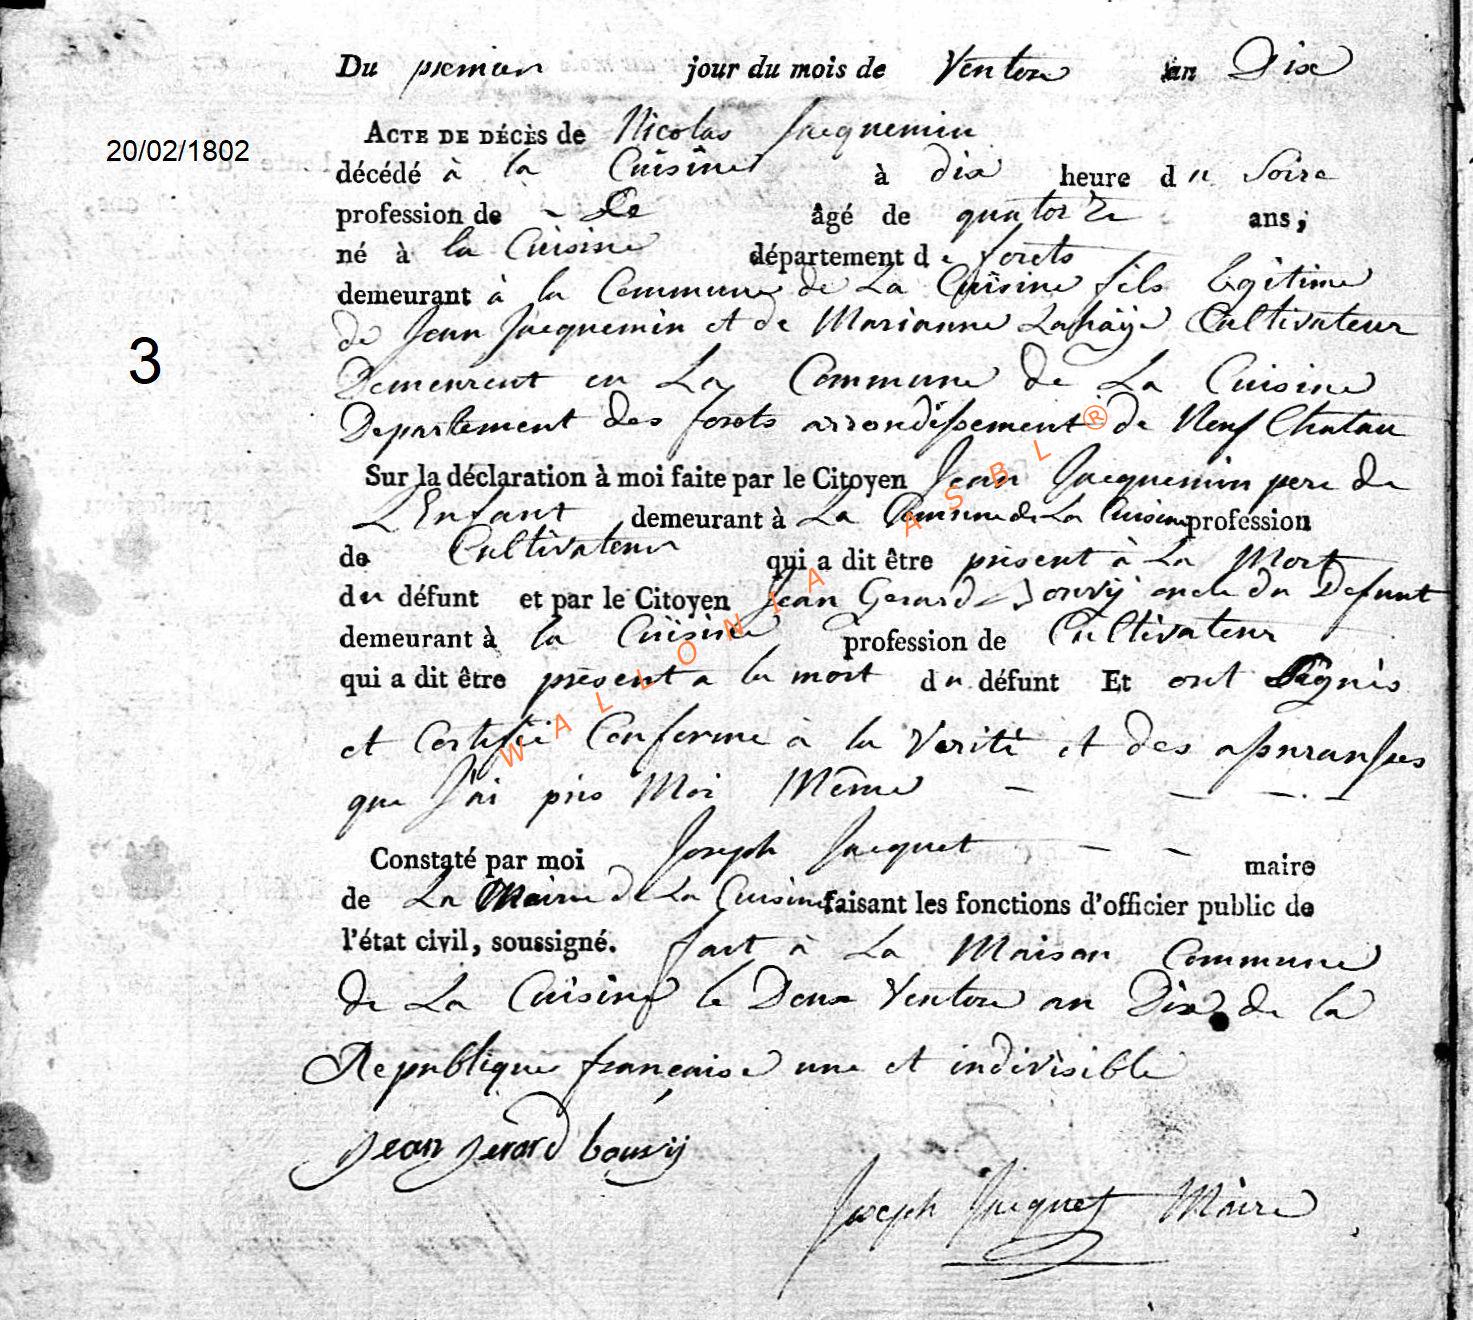 Du premier jour du mois de Ventose an Dix
ACTE DE DÉCÈS de Nicolas Jacquemin
20/02/1802
décédé à la Cuisine à dix heure du Soire
profession de âgé de quatorze ans ;
né à la Cuisine département de forets
demeurant à la Commune de La Cuisine fils legitime
3
de Jean Jacquemin et de Marianne Lahaÿe Cultivateur
Demeurent en La Commune de La Cuisine
Departement des forets arrondissement de Neuf Chatau
Sur la déclaration à moi faite par le Citoyen Jean Jacquemin pere de
L'Enfant demeurant à La Commune de La Cuisine profession
de Cultivateur qui a dit être présent à La Mort
du défunt et par le Citoyen Jean Gerard Bouvÿ oncle du Defunt
demeurant à la Cuisine profession de Cultivateur
qui a dit être présent a la mort du défunt Et ont Signés
et Certifié Conforme à la Verité et des assuranses
que J'ai pris Moi Même
Constaté par moi Joseph Jacquet maire
de La Mairie de La Cuisine faisant les fonctions d'officier public de
l'état civil, soussigné. fait à La Maison Commune
de La Cuisine le Deux Ventose an Dix de la
Republique française une et indivisible
jean jerard bouvÿ
Joseph Jacquet Maire
WALLONIA ASBL ®